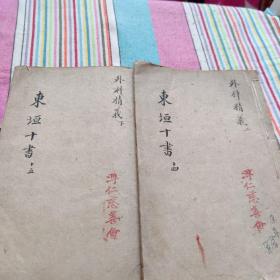 外科精義上
東垣十書 十四
專仁慈善會
外科精義下
東垣十書 十五
專仁慈善會